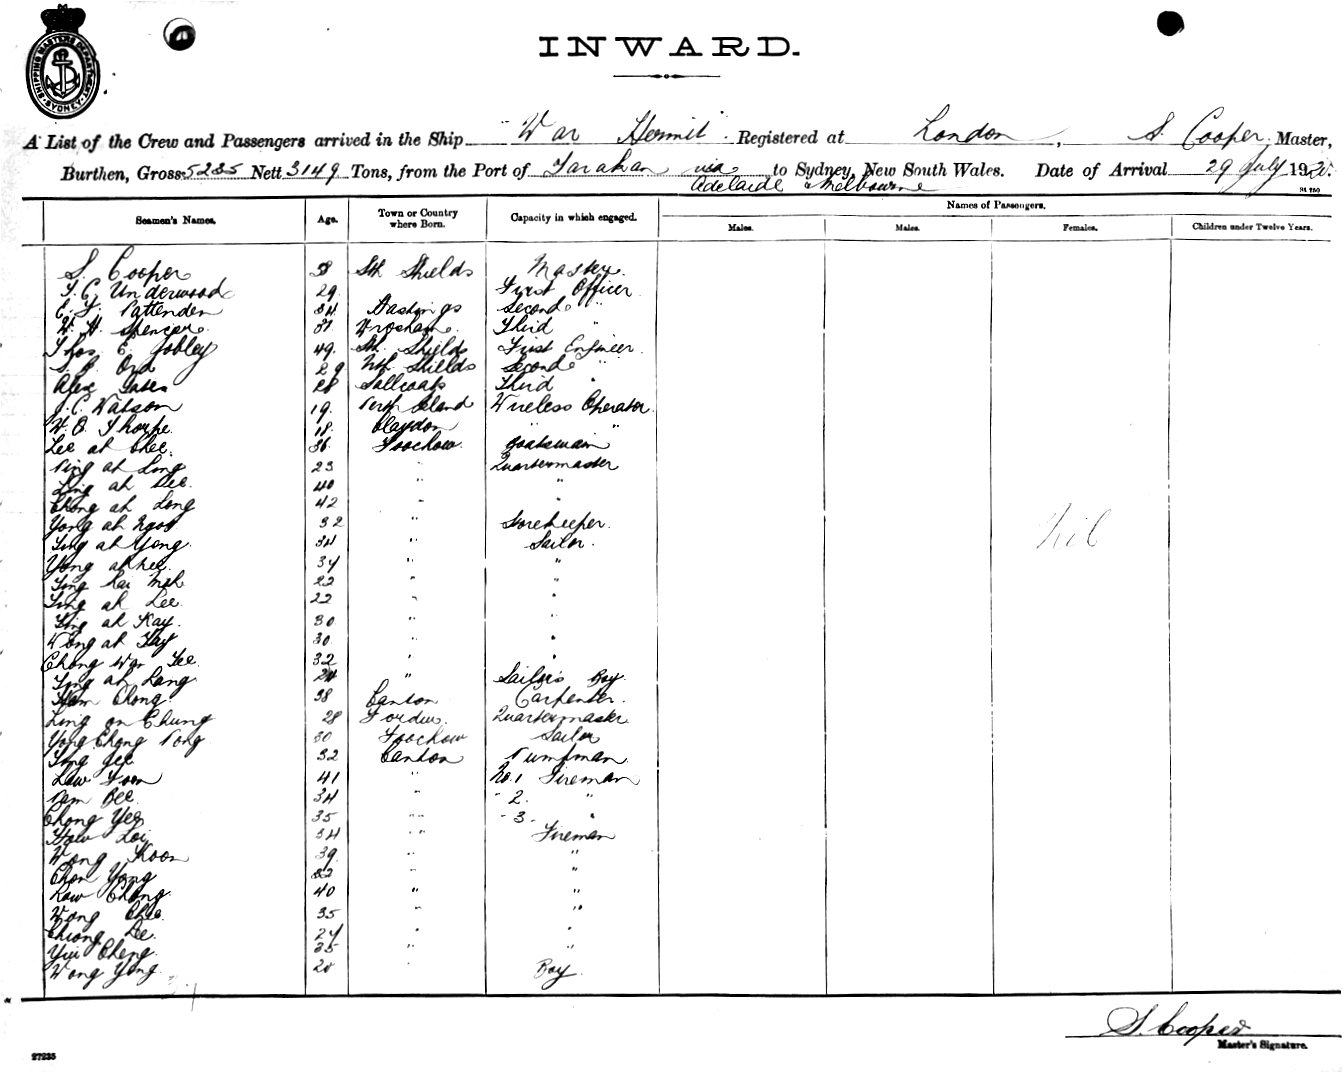 SHIPPING MASTERS DEPARTMENT SYDNEY
INWARD.
A List of the Crew and Passengers arrived in the Ship "War Hermit" Registered at London, S. Cooper, Master,
Burthen, Gross 5235 Nett 3149 Tons, from the Port of Tarakan via Adelaide & Melbourne to Sydney, New South Wales. Date of Arrival 29 July 1920.
Seamen's Names. Age. Town or Country where Born. Capacity in which engaged. Names of Passengers.
Males. Males. Females. Children under Twelve Years.
S. Cooper 38 Sth Shields Master.
T. C. Underwood 29. First Officer
E. F. Pattenden 34 Hastings Second "
W. H. Spencer. 37 Third "
Thos E. Gobley 49. Sth. Shields First Engineer.
S. B. Ord 29 Nth Shields Second "
Alex 28 Third "
J. C. Watson 19. Wireless Operator
W. O. Thorpe. 18. Claydon " "
Lee ah Chee. 36. Foochow. Boatswain
Ning ah Long 23 " Quartermaster
Ling ah Dee. 40 " "
Chong ah Long 42 " "
Yong ah 32 " Storekeeper.
Ting ah Yong. 34 " Sailor.
Yong ah Lee. 34 " "
Ting Kai 22 " "
Ting ah Lee 22 " "
Ting ah Kay. 30 " "
Wong ah 30 " "
Chong War 32 " "
Ting ah Lang 24 " Sailor's Boy.
Ham Chong. 38 Canton Carpenter.
Ling on Chung 28 Quartermaster
Yong Chong 30 Foochow Sailor
32 Canton Pumpman.
Law Foon 41 " No. 1 Fireman
Bee. 34 " " 2. "
Chong Yee 35 " " 3. "
Loi 34 " Fireman
Wong Koon 39. " "
Chon Yong 32 " "
Law Chong. 40 " "
Wong Chee. 35 " "
Chiong Lee. 24 " "
Yiu Cheng. 35 " "
Wong Yong. 20 " Boy.
Nil
S. Cooper
Master's Signature.
27235